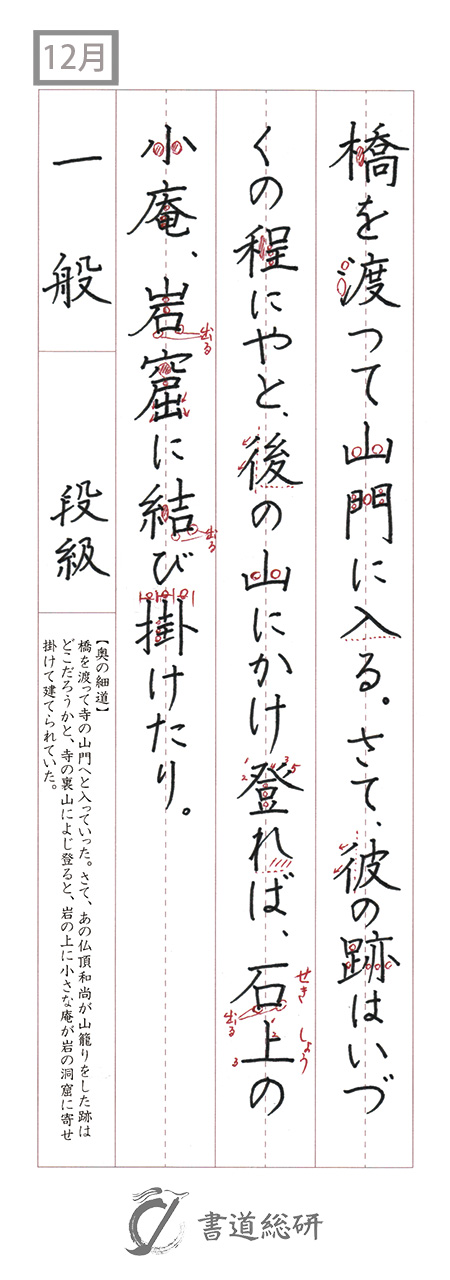 12月
橋を渡つて山門に入る。さて、彼の跡はいづ
くの程にやと、後の山にかけ登れば、石上の
せきしょう
出る
小庵、岩窟に結び掛けたり。
出る
出る
一般
段級
【奥の細道】
橋を渡って寺の山門へと入っていった。さて、あの仏頂和尚が山籠りをした跡は
どこだろうかと、寺の裏山によじ登ると、岩の上に小さな庵が岩の洞窟に寄せ
掛けて建てられていた。
書道総研